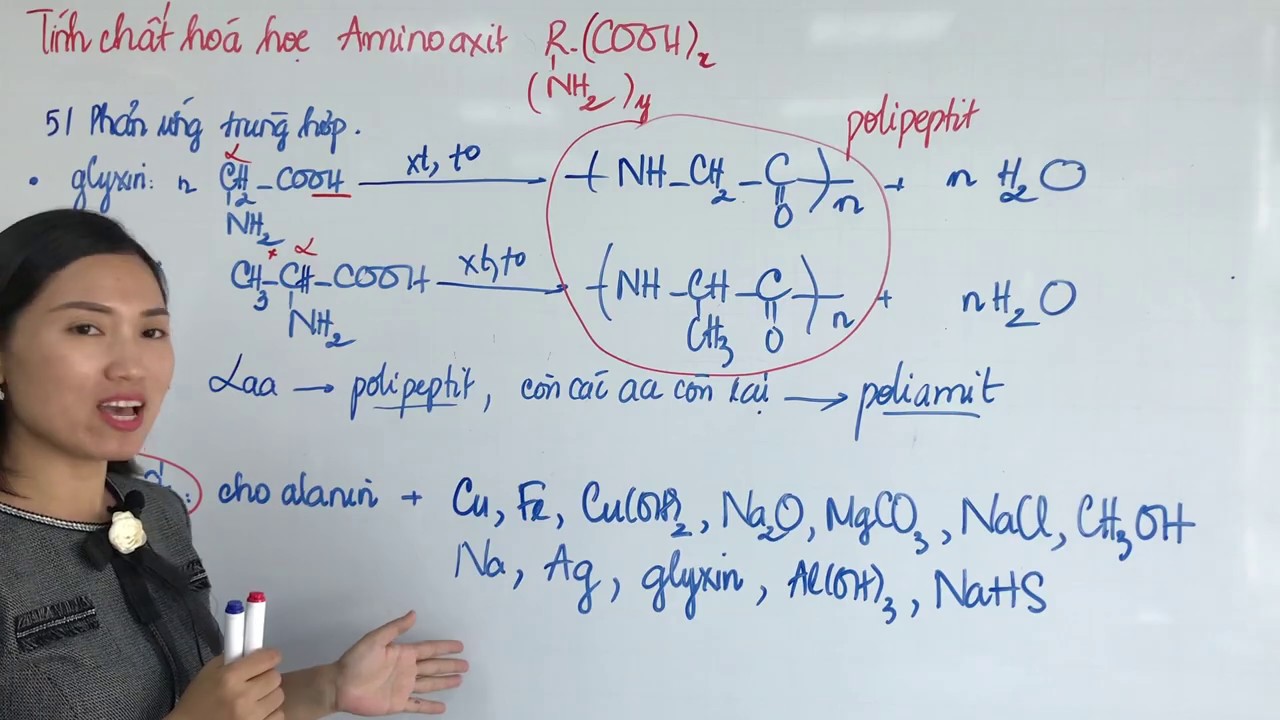 Tính chất hoá học Aminoaxit R-(COOH)x
(NH2)y
5/ Phản ứng trùng hợp.
polipeptit
• glyxin: n CH2-COOH xt, to -(NH-CH2-C)-n + n H2O
α
NH2
O
CH3-CH-COOH xt, to -(NH-CH-C)-n + nH2O
* α
NH2
CH3 O
αaa → polipeptit, còn các aa còn lại → poliamit
cho alanin + Cu, Fe, Cu(OH)2, Na2O, MgCO3, NaCl, CH3OH
Na, Ag, glyxin, Al(OH)3, NaHS